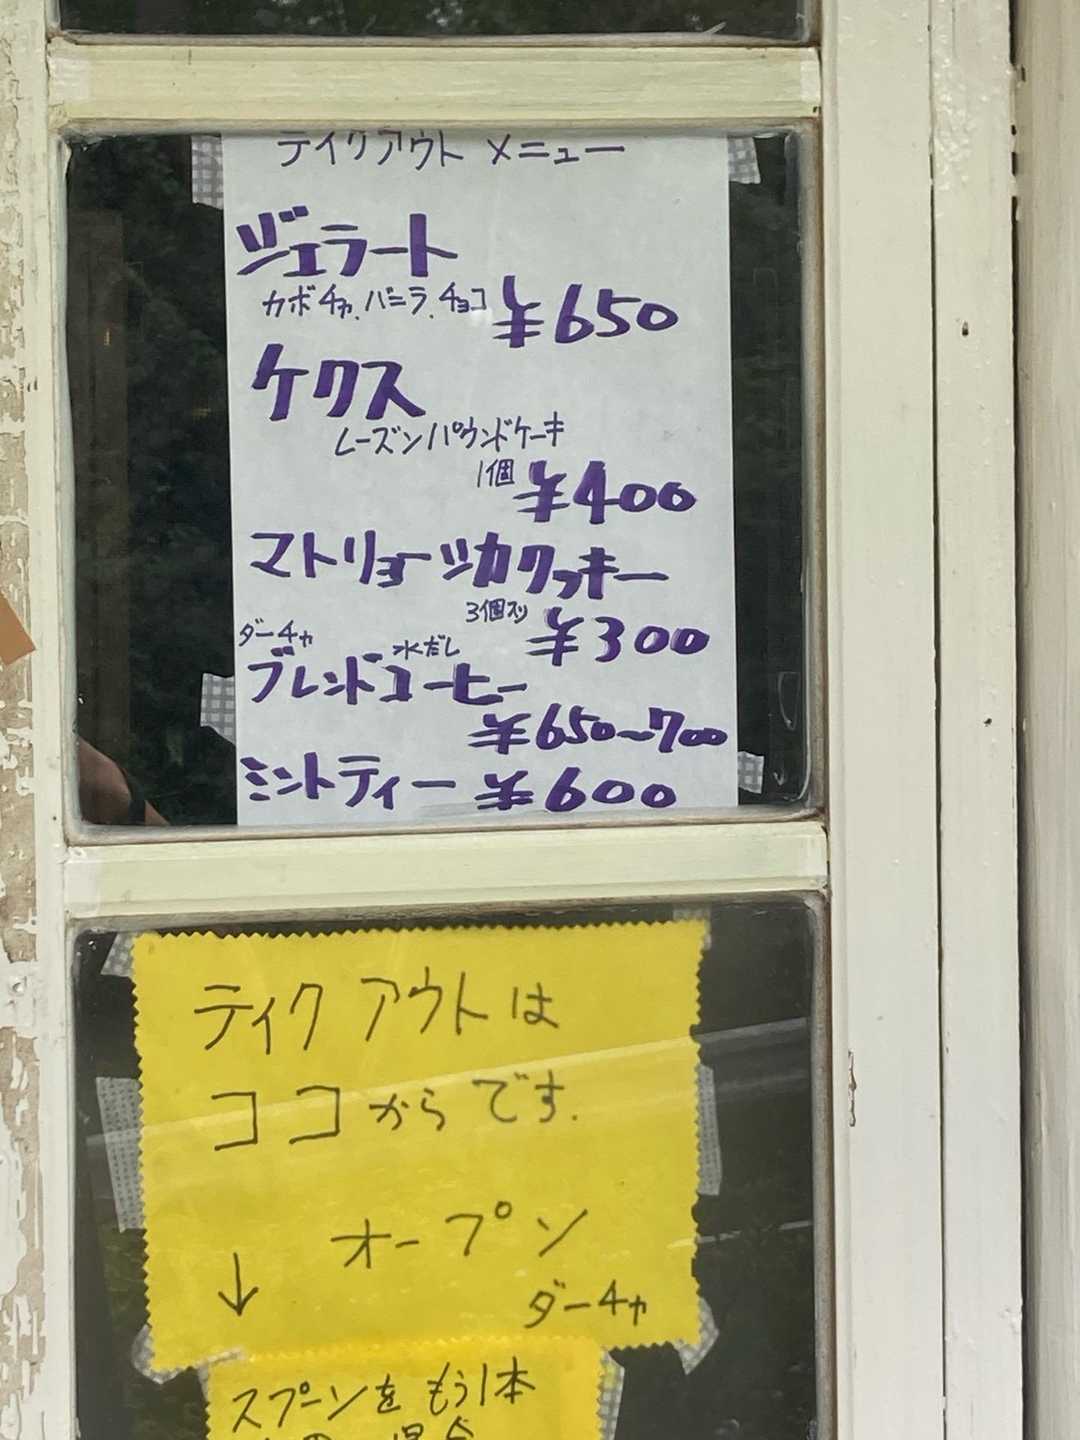 テイクアウト メニュー
ジェラート
カボチャ、バニラ、チョコ ¥650
ケクス
レーズンパウンドケーキ
1個 ¥400
マトリョーシカクッキー
3個入り ¥300
ダーチャ 水だし
ブレンドコーヒー
¥650〜700
ミントティー ¥600
テイク アウトは
ココからです.
オープン
↓ ダーチャ
スプーンを もう1本